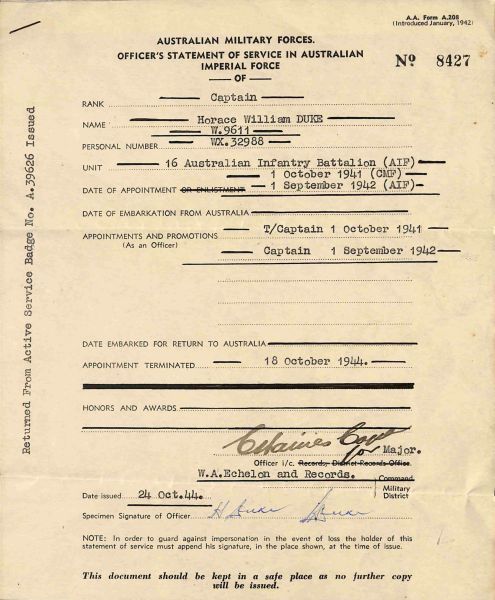 A.A. Form A.208
(Introduced January, 1942)
AUSTRALIAN MILITARY FORCES.
OFFICER'S STATEMENT OF SERVICE IN AUSTRALIAN
IMPERIAL FORCE
— OF —
No 8427
RANK Captain
NAME Horace William DUKE
W.9611
PERSONAL NUMBER WX.32988
UNIT 16 Australian Infantry Battalion (AIF)
1 October 1941 (CMF)
DATE OF APPOINTMENT OR ENLISTMENT 1 September 1942 (AIF)
DATE OF EMBARKATION FROM AUSTRALIA
APPOINTMENTS AND PROMOTIONS T/Captain 1 October 1941
(As an Officer)
Captain 1 September 1942
DATE EMBARKED FOR RETURN TO AUSTRALIA
APPOINTMENT TERMINATED 18 October 1944.
HONORS AND AWARDS
for Major.
Officer i/c. Records, District Records Office.
W.A.Echelon and Records. Command
Military
District
Date issued 24 Oct.44.
Specimen Signature of Officer H Duke H Duke
NOTE: In order to guard against impersonation in the event of loss the holder of this
statement of service must append his signature, in the place shown, at the time of issue.
This document should be kept in a safe place as no further copy
will be issued.
Returned From Active Service Badge No. A.39626 Issued